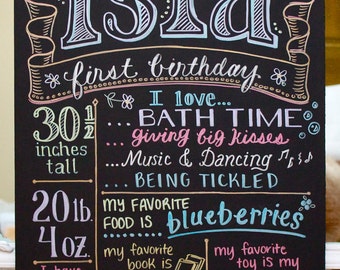 isla
first birthday
I love...
30 1/2
inches
tall
...BATH TIME
...giving big kisses
...Music & Dancing
...BEING TICKLED
20 lb.
4 oz.
MY FAVORITE
FOOD IS... blueberries
my favorite
book is
my favorite
toy is my
I have